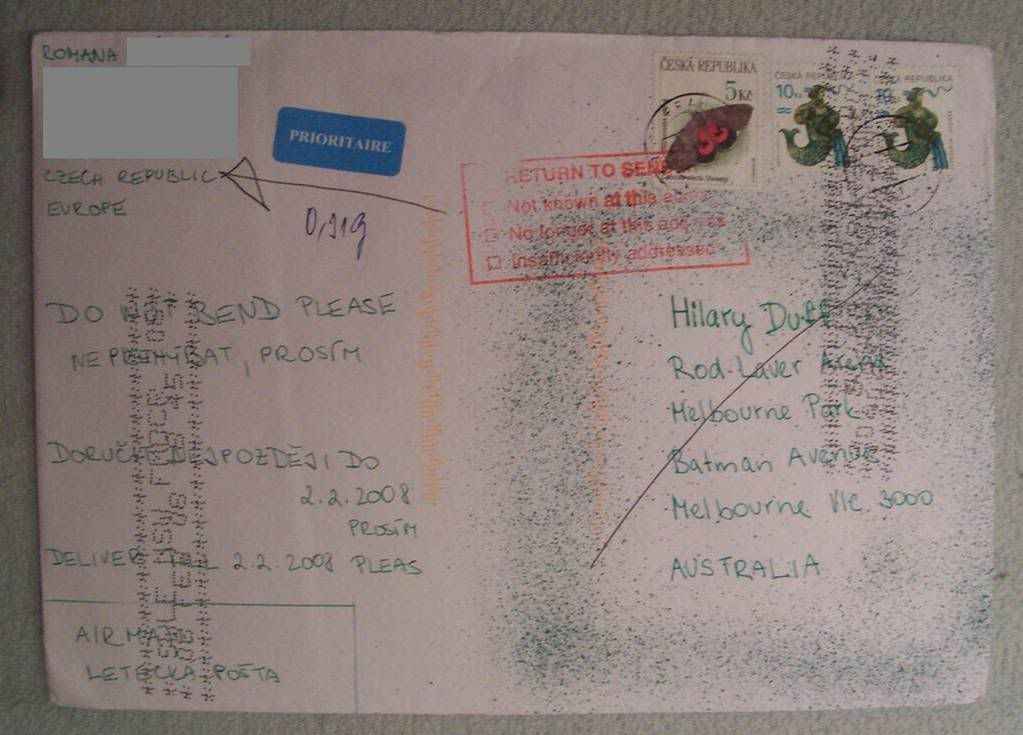 ROMANA
CZECH REPUBLIC
EUROPE
PRIORITAIRE
0,11g
ČESKÁ REPUBLIKA
5 Kč
ČESKÁ REPUBLIKA
10 Kč
REPUBLIKA
RETURN TO SEN
Not known at this
No longer at this address
Insufficiently addressed
DO NOT BEND PLEASE
NEPŘEHÝBAT, PROSÍM
DORUČIT NEJPOZDĚJI DO
2.2.2008
PROSÍM
DELIVER TILL 2.2.2008 PLEAS
AIR MAIL
LETECKÁ POŠTA
Hilary Duff
Rod Laver Arena
Melbourne Park
Batman Avenue
Melbourne VIC 3000
AUSTRALIA